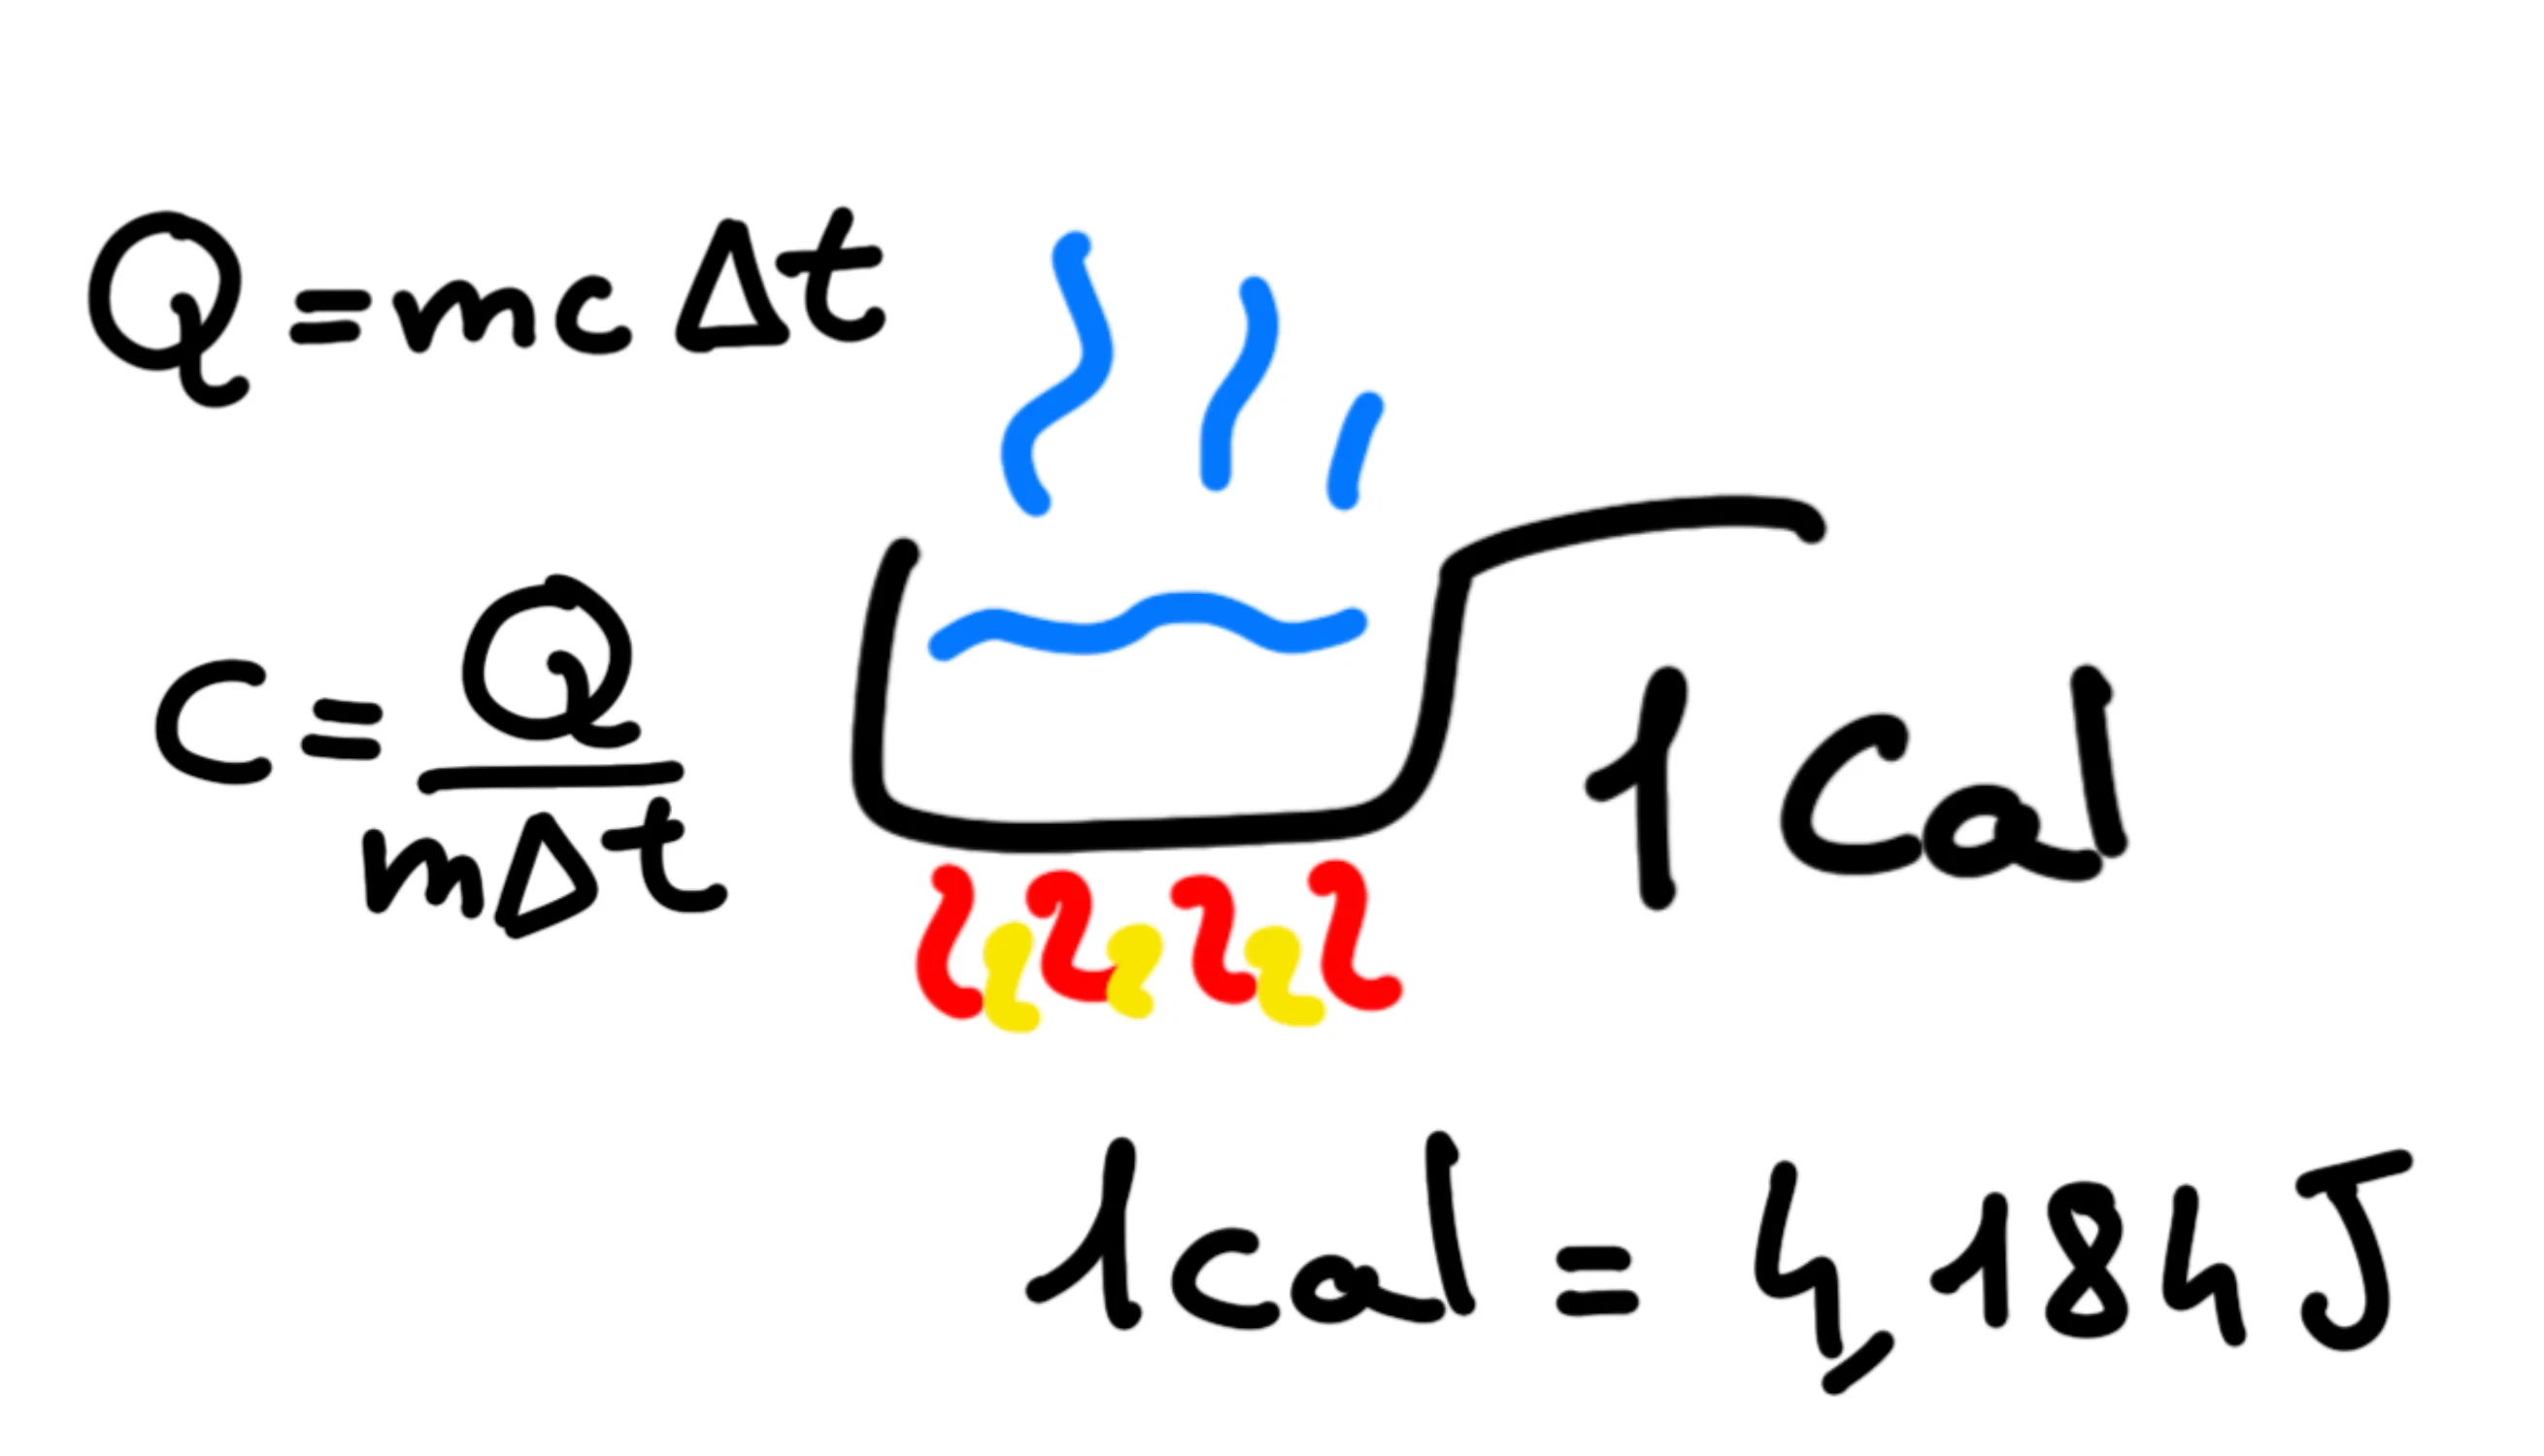 Q = mc Δt
C = Q / mΔt
1 Cal
1 cal = 4,184 J